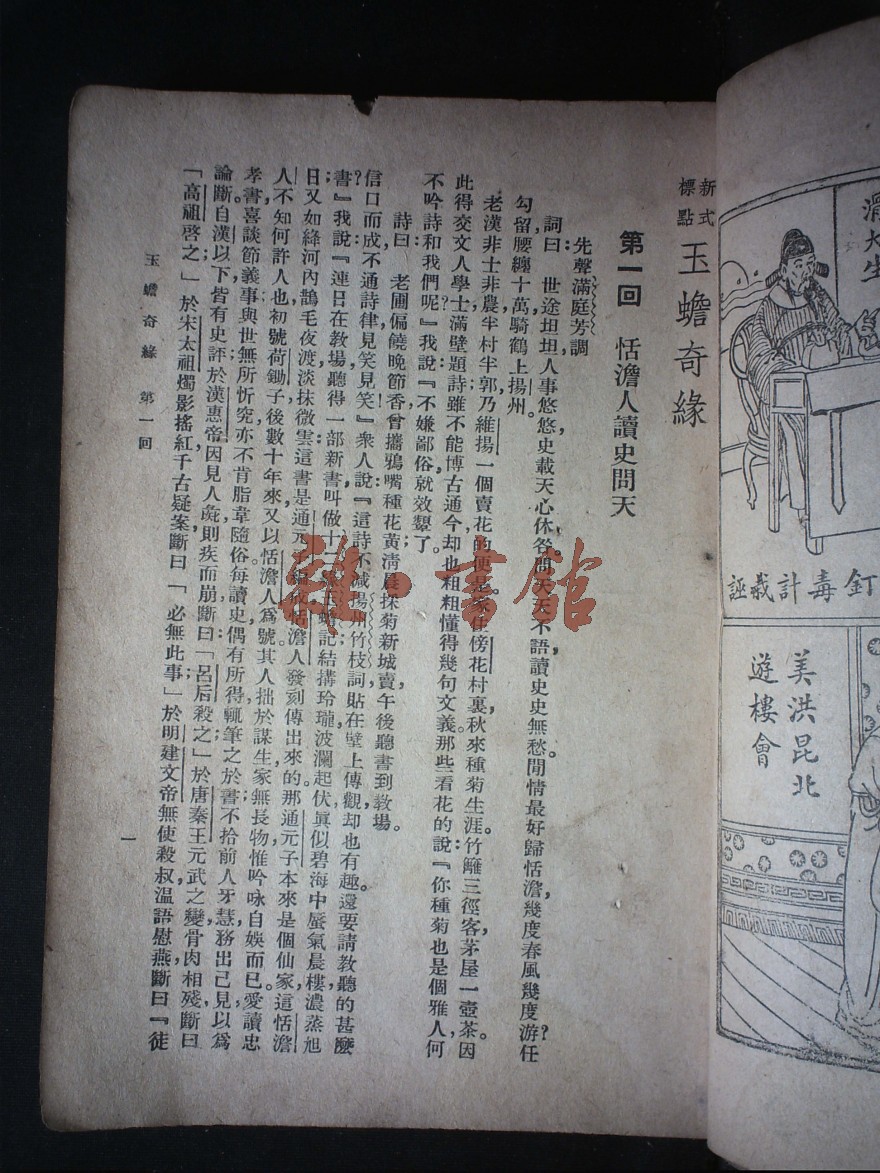 新式標點 玉蟾奇緣
第一回 恬澹人讀史問天
先聲滿庭芳調
詞曰：世途坦坦，人事悠悠，史載天心休咎。問天天不語，讀史史無愁。閒情最好歸恬澹，幾度春風幾度游？任
勾留，腰纏十萬，騎鶴上揚州。
老漢非士非農，半村半郭，乃維揚一個賣花的便是。家住傍花村裏，秋來種菊生涯。竹籬三徑客，茅屋一壺茶。因
此得交文人學士，滿壁題詩，雖不能博古通今，却也粗粗懂得幾句文義。那些看花的說：『你種菊也是個雅人，何
不吟詩和我們呢？』我說：『不嫌鄙俗，就效顰了。
詩曰：老圃偏饒晚節香，曾攜鴉嘴種花黃；清晨採菊新城賣，午後聽書到教場。
信口而成，不通詩律，見笑見笑！』衆人說：『這詩不減揚州竹枝詞，貼在壁上傳觀，却也有趣。還要請教聽的甚麼
書？』我說：『連日在教場聽得一部新書，叫做十二 玉蟾記；結搆玲瓏，波瀾起伏，眞似碧海中蜃氣晨樓，濃蒸旭
日；又如絳河內鵲毛夜渡，淡抹微雲。這書是通元子 恬澹人發刻傳出來的。那通元子本來是個仙家，這恬澹
人不知何許人也，初號荷鋤子，後數十年來，又以恬澹人爲號。其人拙於謀生，家無長物，惟吟咏自娛而已。愛讀忠
孝書，喜談節義事，與世無所忻，究亦不肯脂韋隨俗。每讀史偶有所得，輒筆之於書，不拾前人牙慧，務出己見以爲
論斷。自漢以下，皆有史評：於漢惠帝因見人彘則疾而崩，斷曰：「呂后殺之」；於唐秦王元武之變，骨肉相殘，斷曰：
「高祖啓之」；於宋太祖燭影搖紅，千古疑案，斷曰：「必無此事」；於明建文帝無使殺叔，溫語慰燕，斷曰：『徒
玉蟾奇緣 第一回
一
滑大生
釘毒計羲誣
美洪昆北
遊樓會